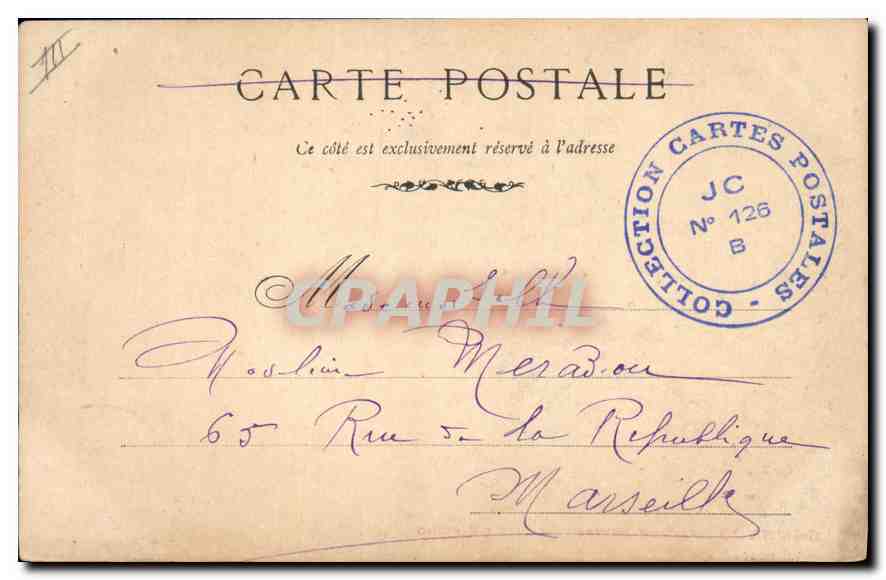 III
CARTE POSTALE
Ce côté est exclusivement réservé à l'adresse
COLLECTION CARTES POSTALES -
JC
N° 126
B
CPAPHIL
65 Rue de la République
Marseille